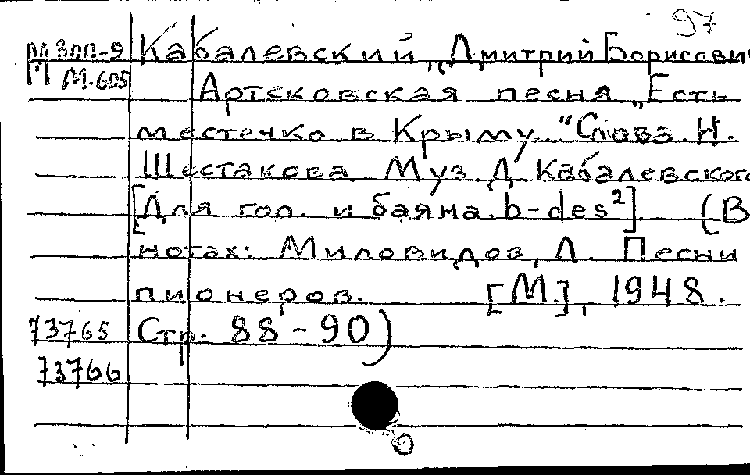 97
М ЗПП-9 Кабалевский, Дмитрий Борисович
М М-605 Артековская песня „Есть
местечко в Крыму." Слова Н.
Шестакова Муз. Д. Кабалевского
[Для гол. и баяна. b-des²] (В
нотах: Миловидов, Л. Песни
пионеров. [М.], 1948.
73765 Стр. 88-90)
73766